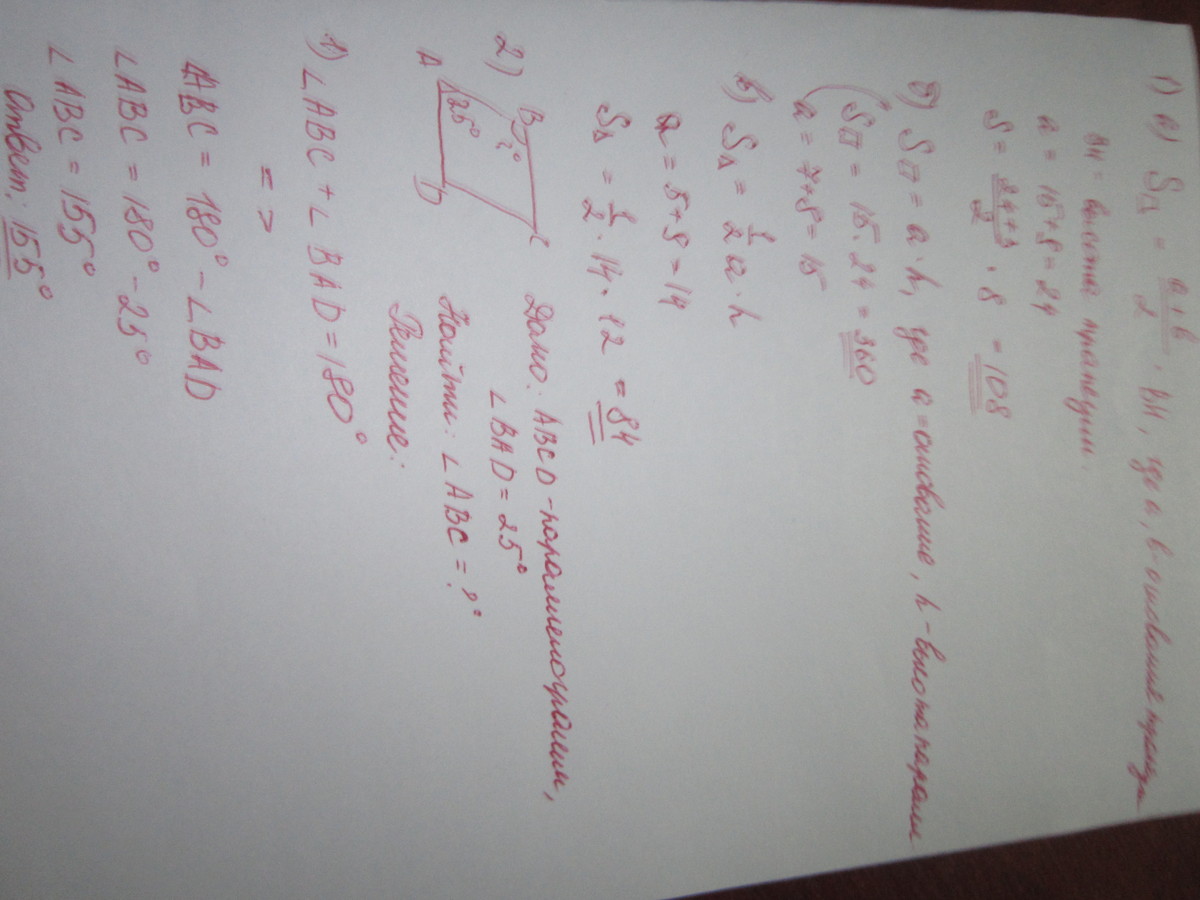 1) а) S = a+b/2 · BH, где a, b - основания трапеции
BH = высота трапеции.
a = 15+9=24
S = 24+3/2 · 8 = 108
б) S▱ = a·h, где a = основание, h - высота паралл
S▱ = 15·24 = 360
a = 7+8 = 15
в) S△ = 1/2 a·h
a = 5+9=14
S△ = 1/2 · 14 · 12 = 84
2) B ?° C
A 25° D
Дано: ABCD - параллелограмм,
∠BAD = 25°
Найти: ∠ABC = ?°
Решение:
1) ∠ABC + ∠BAD = 180°
=>
∠ABC = 180° - ∠BAD
∠ABC = 180° - 25°
∠ABC = 155°
Ответ: 155°